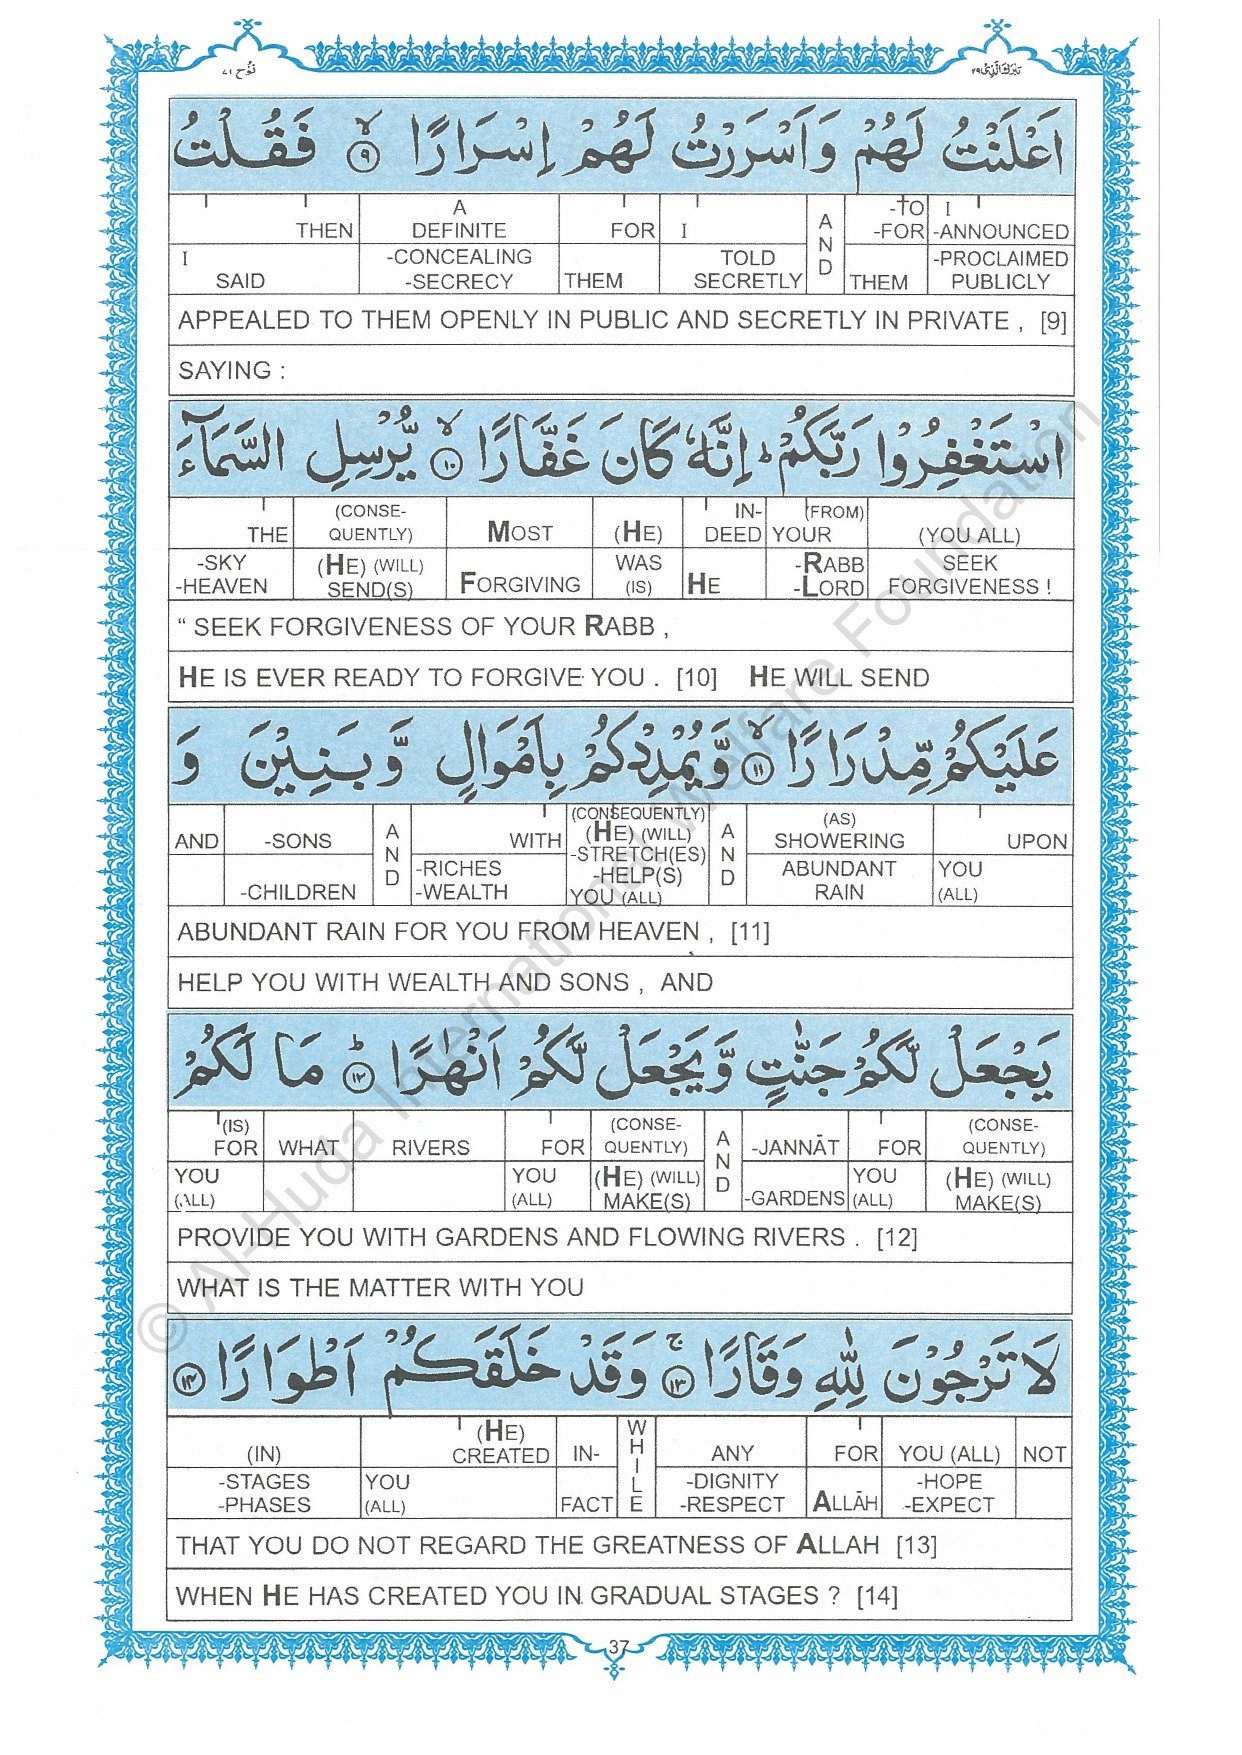 تبٰرك الّذى ٢٩
نُوْح ٧١
اَعْلَنْتُ لَهُمْ وَاَسْرَرْتُ لَهُمْ اِسْرَارًا ۙ ٩ فَقُلْتُ
I THEN | A DEFINITE | FOR | I | AND | -TO -FOR | I -ANNOUNCED
I SAID | -CONCEALING -SECRECY | THEM | TOLD SECRETLY | THEM | -PROCLAIMED PUBLICLY
APPEALED TO THEM OPENLY IN PUBLIC AND SECRETLY IN PRIVATE , [9]
SAYING :
اسْتَغْفِرُوْا رَبَّكُمْ ؕ اِنَّهٗ كَانَ غَفَّارًا ۙ ١٠ يُّرْسِلِ السَّمَآءَ
THE | (CONSE-QUENTLY) | MOST | (HE) | IN-DEED | (FROM) YOUR | (YOU ALL)
-SKY -HEAVEN | (HE) (WILL) SEND(S) | FORGIVING | WAS (IS) | HE | -RABB -LORD | SEEK FORGIVENESS !
“ SEEK FORGIVENESS OF YOUR RABB ,
HE IS EVER READY TO FORGIVE YOU . [10] HE WILL SEND
عَلَيْكُمْ مِّدْرَارًا ۙ ١١ وَّيُمْدِدْكُمْ بِاَمْوَالٍ وَّبَنِيْنَ وَ
AND | -SONS | AND | WITH | (CONSEQUENTLY) (HE) (WILL) | AND | (AS) SHOWERING | UPON
-CHILDREN | -RICHES -WEALTH | -STRETCH(ES) -HELP(S) YOU (ALL) | ABUNDANT RAIN | YOU (ALL)
ABUNDANT RAIN FOR YOU FROM HEAVEN , [11]
HELP YOU WITH WEALTH AND SONS , AND
يَجْعَلْ لَّكُمْ جَنّٰتٍ وَّيَجْعَلْ لَّكُمْ اَنْهٰرًا ؕ ١٢ مَا لَكُمْ
(IS) FOR | WHAT | RIVERS | FOR | (CONSE-QUENTLY) | AND | -JANNĀT | FOR | (CONSE-QUENTLY)
YOU (ALL) | YOU (ALL) | (HE) (WILL) MAKE(S) | -GARDENS | YOU (ALL) | (HE) (WILL) MAKE(S)
PROVIDE YOU WITH GARDENS AND FLOWING RIVERS . [12]
WHAT IS THE MATTER WITH YOU
لَا تَرْجُوْنَ لِلّٰهِ وَقَارًا ۚ ١٣ وَقَدْ خَلَقَكُمْ اَطْوَارًا ١٤
(IN) | (HE) CREATED | IN- | WHILE | ANY | FOR | YOU (ALL) | NOT
-STAGES -PHASES | YOU (ALL) | FACT | -DIGNITY -RESPECT | ALLĀH | -HOPE -EXPECT
THAT YOU DO NOT REGARD THE GREATNESS OF ALLAH [13]
WHEN HE HAS CREATED YOU IN GRADUAL STAGES ? [14]
37
© Al-Huda International Welfare Foundation